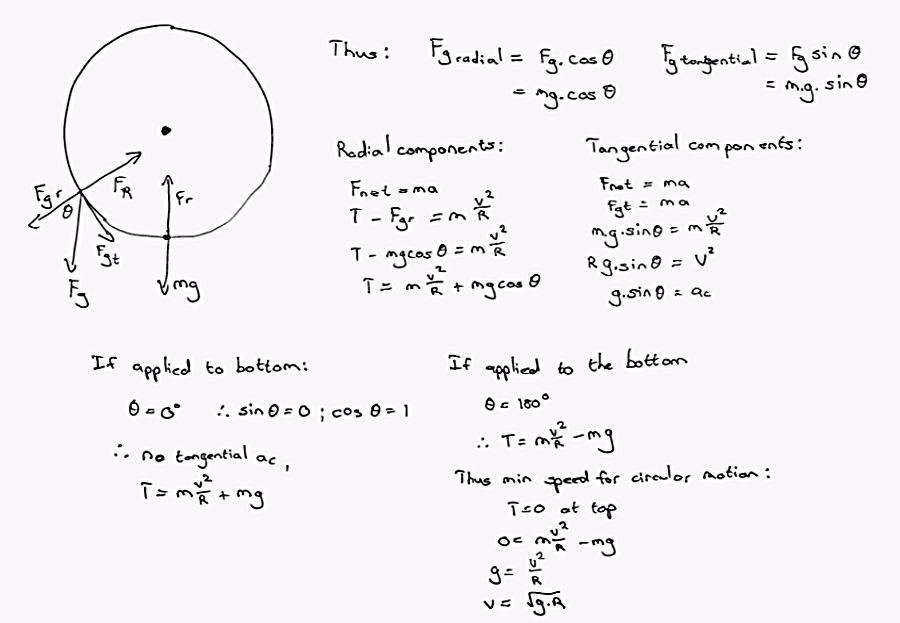 Thus: Fg radial = Fg. cosθ
= mg. cosθ
Fg tangential = Fg sinθ
= m.g. sinθ
Fgr
θ
FR
Fr
Fgt
Fg
mg
Radial components:
Fnet = ma
T - Fgr = m v²/R
T - mgcosθ = m v²/R
T = m v²/R + mgcosθ
Tangential components:
Fnet = ma
Fgt = ma
m.g. sinθ = m v²/R
R g. sinθ = V²
g. sinθ = ac
If applied to bottom:
θ = 0° ∴ sinθ = 0 ; cosθ = 1
∴ no tangential ac,
T = m v²/R + mg
If applied to the bottom
θ = 180°
∴ T = m v²/R - mg
Thus min speed for circular motion:
T=0 at top
0 = m v²/R - mg
g = v²/R
v = √g.R